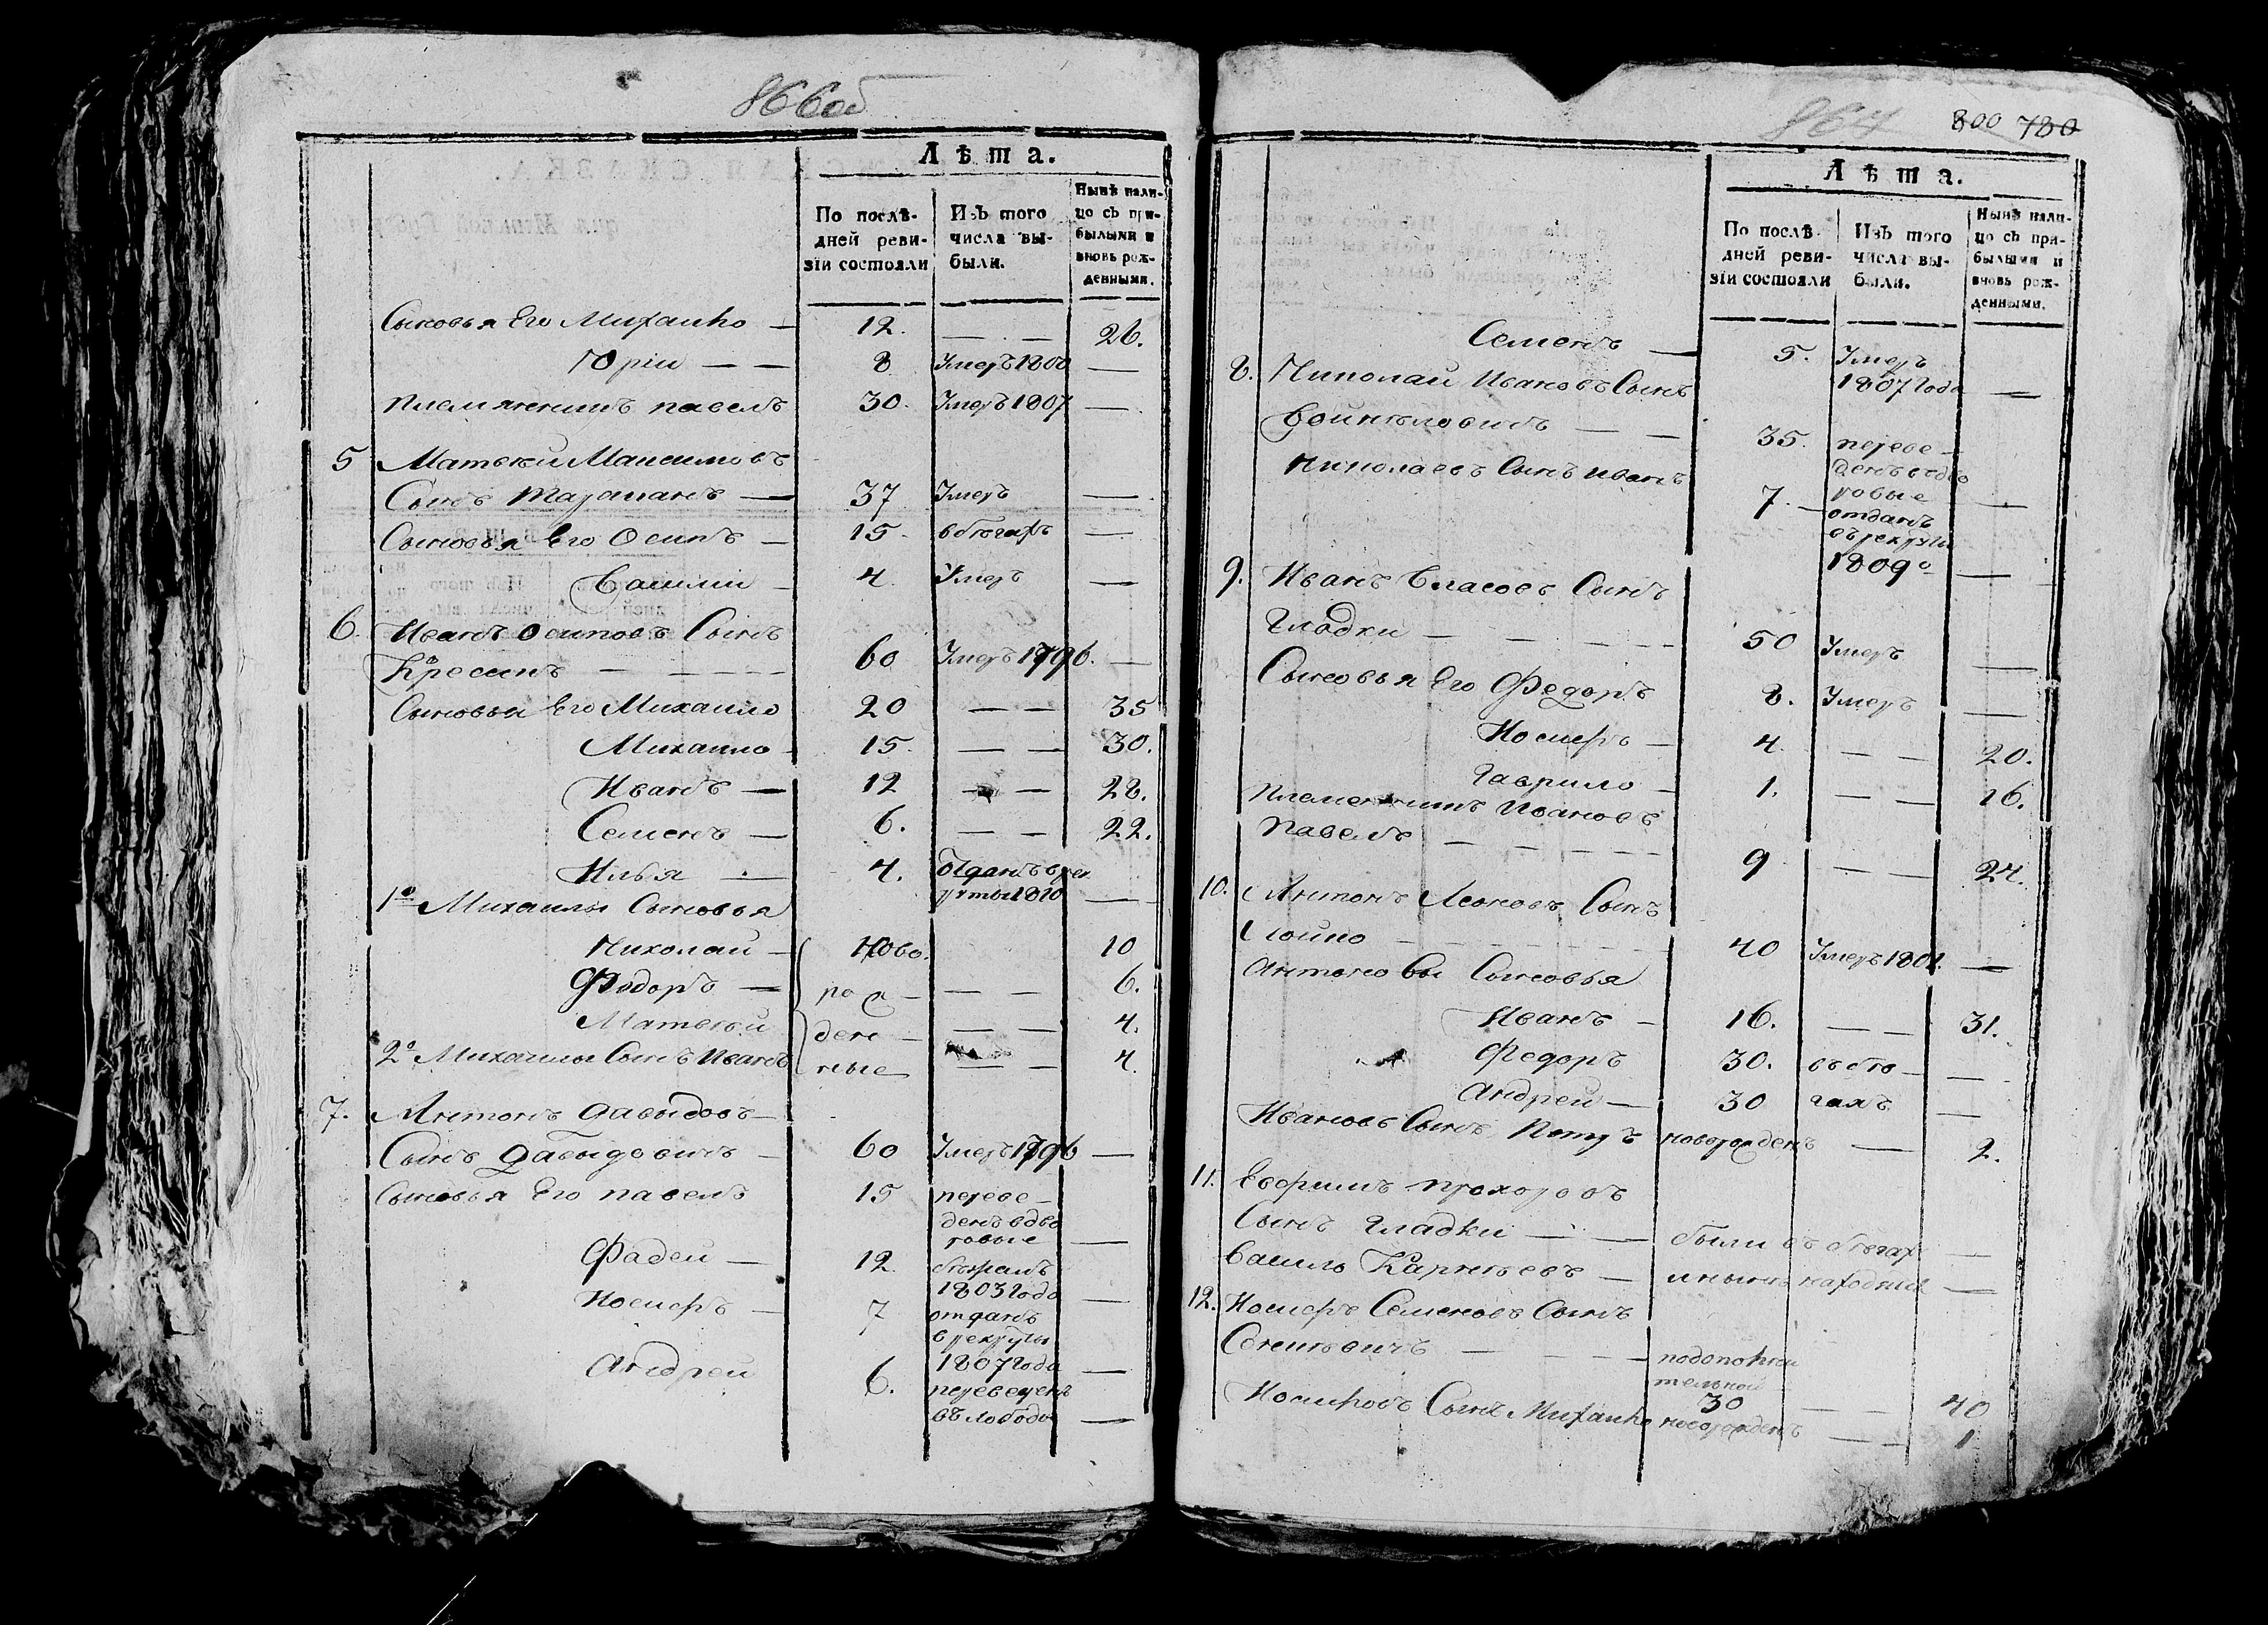 866об
Лѣта.
По послѣ-
дней реви-
зіи состояли
Изъ того
числа вы-
были.
Нынѣ нали-
цо съ при-
былыми и
вновь рож-
денными.
Сыновья Его Михайло — 12. — — 26.
Юрій — — 8 Умеръ 1800 —
племянникъ павелъ 30. Умеръ 1807 —
5 Матвей Максимовъ
Сынъ — 37 Умеръ —
Сыновья Его Осипъ — 15 в бегахъ —
Василій — 4. Умеръ —
6. Иванъ Осиповъ Сынъ
— — — 60 Умеръ 1796. —
Сыновья Его Михайло 20 — — 35
Михайло 15. — — 30.
Иванъ — 12 — — 28.
Семенъ — 6. — — 22.
Илья — 4. Отданъ в рек
руты 1810 —
1о Михайлы Сыновья
Николай — Ново 10
Федоръ — рож — — 6.
Матвей ден — — — 4.
2о Михайлы Сынъ Иванъ ные — — 4.
7. Антонъ Давыдовъ —
Сынъ Давыдовичъ — 60 Умеръ 1796 —
Сыновья Его павелъ 15 переве-
денъ в дво
ровые —
Фадей — 12. бежалъ
1803 года —
Иосифъ — 7 отданъ
в рекруты
1807 года —
Андрей 6. переведенъ
въ слободу —
867 800 780
Лѣта.
По послѣ-
дней реви-
зіи состояли
Изъ того
числа вы-
были.
Нынѣ нали-
цо съ при-
былыми и
вновь рож-
денными.
Семенъ — 5. Умеръ
1807 Года —
8. Николай Ивановъ Сынъ
— — 35. переве-
денъ въ дво
ровые —
Николаевъ Сынъ Иванъ 7. — отданъ
въ рекруты
1809о —
9. Иванъ Власовъ Сынъ
Гладки — — — — 50 Умеръ —
Сыновья Его Федоръ 8. Умеръ —
Иосифъ — 4. — — 20.
Гаврило — 1. — — 16.
Племенникъ Ивановъ
Павелъ — — — — 9 — — 24.
10. Антонъ Леоновъ Сынъ
— 40 Умеръ 1801. —
Антоновы Сыновья
Иванъ — 16. — — 31.
Федоръ 30. въ бе — —
Андрей — 30 гахъ —
Ивановъ Сынъ Петръ новорожденъ — 2.
11. Ефимъ прохоровъ
Сынъ Гладки — — были въ бегах —
Василь Карнеевъ — —
12. Иосифъ Семеновъ Сынъ
— — — подополни
тельной
30 — — 40
Иосифовъ Сынъ Михайло новорожденъ — — 1